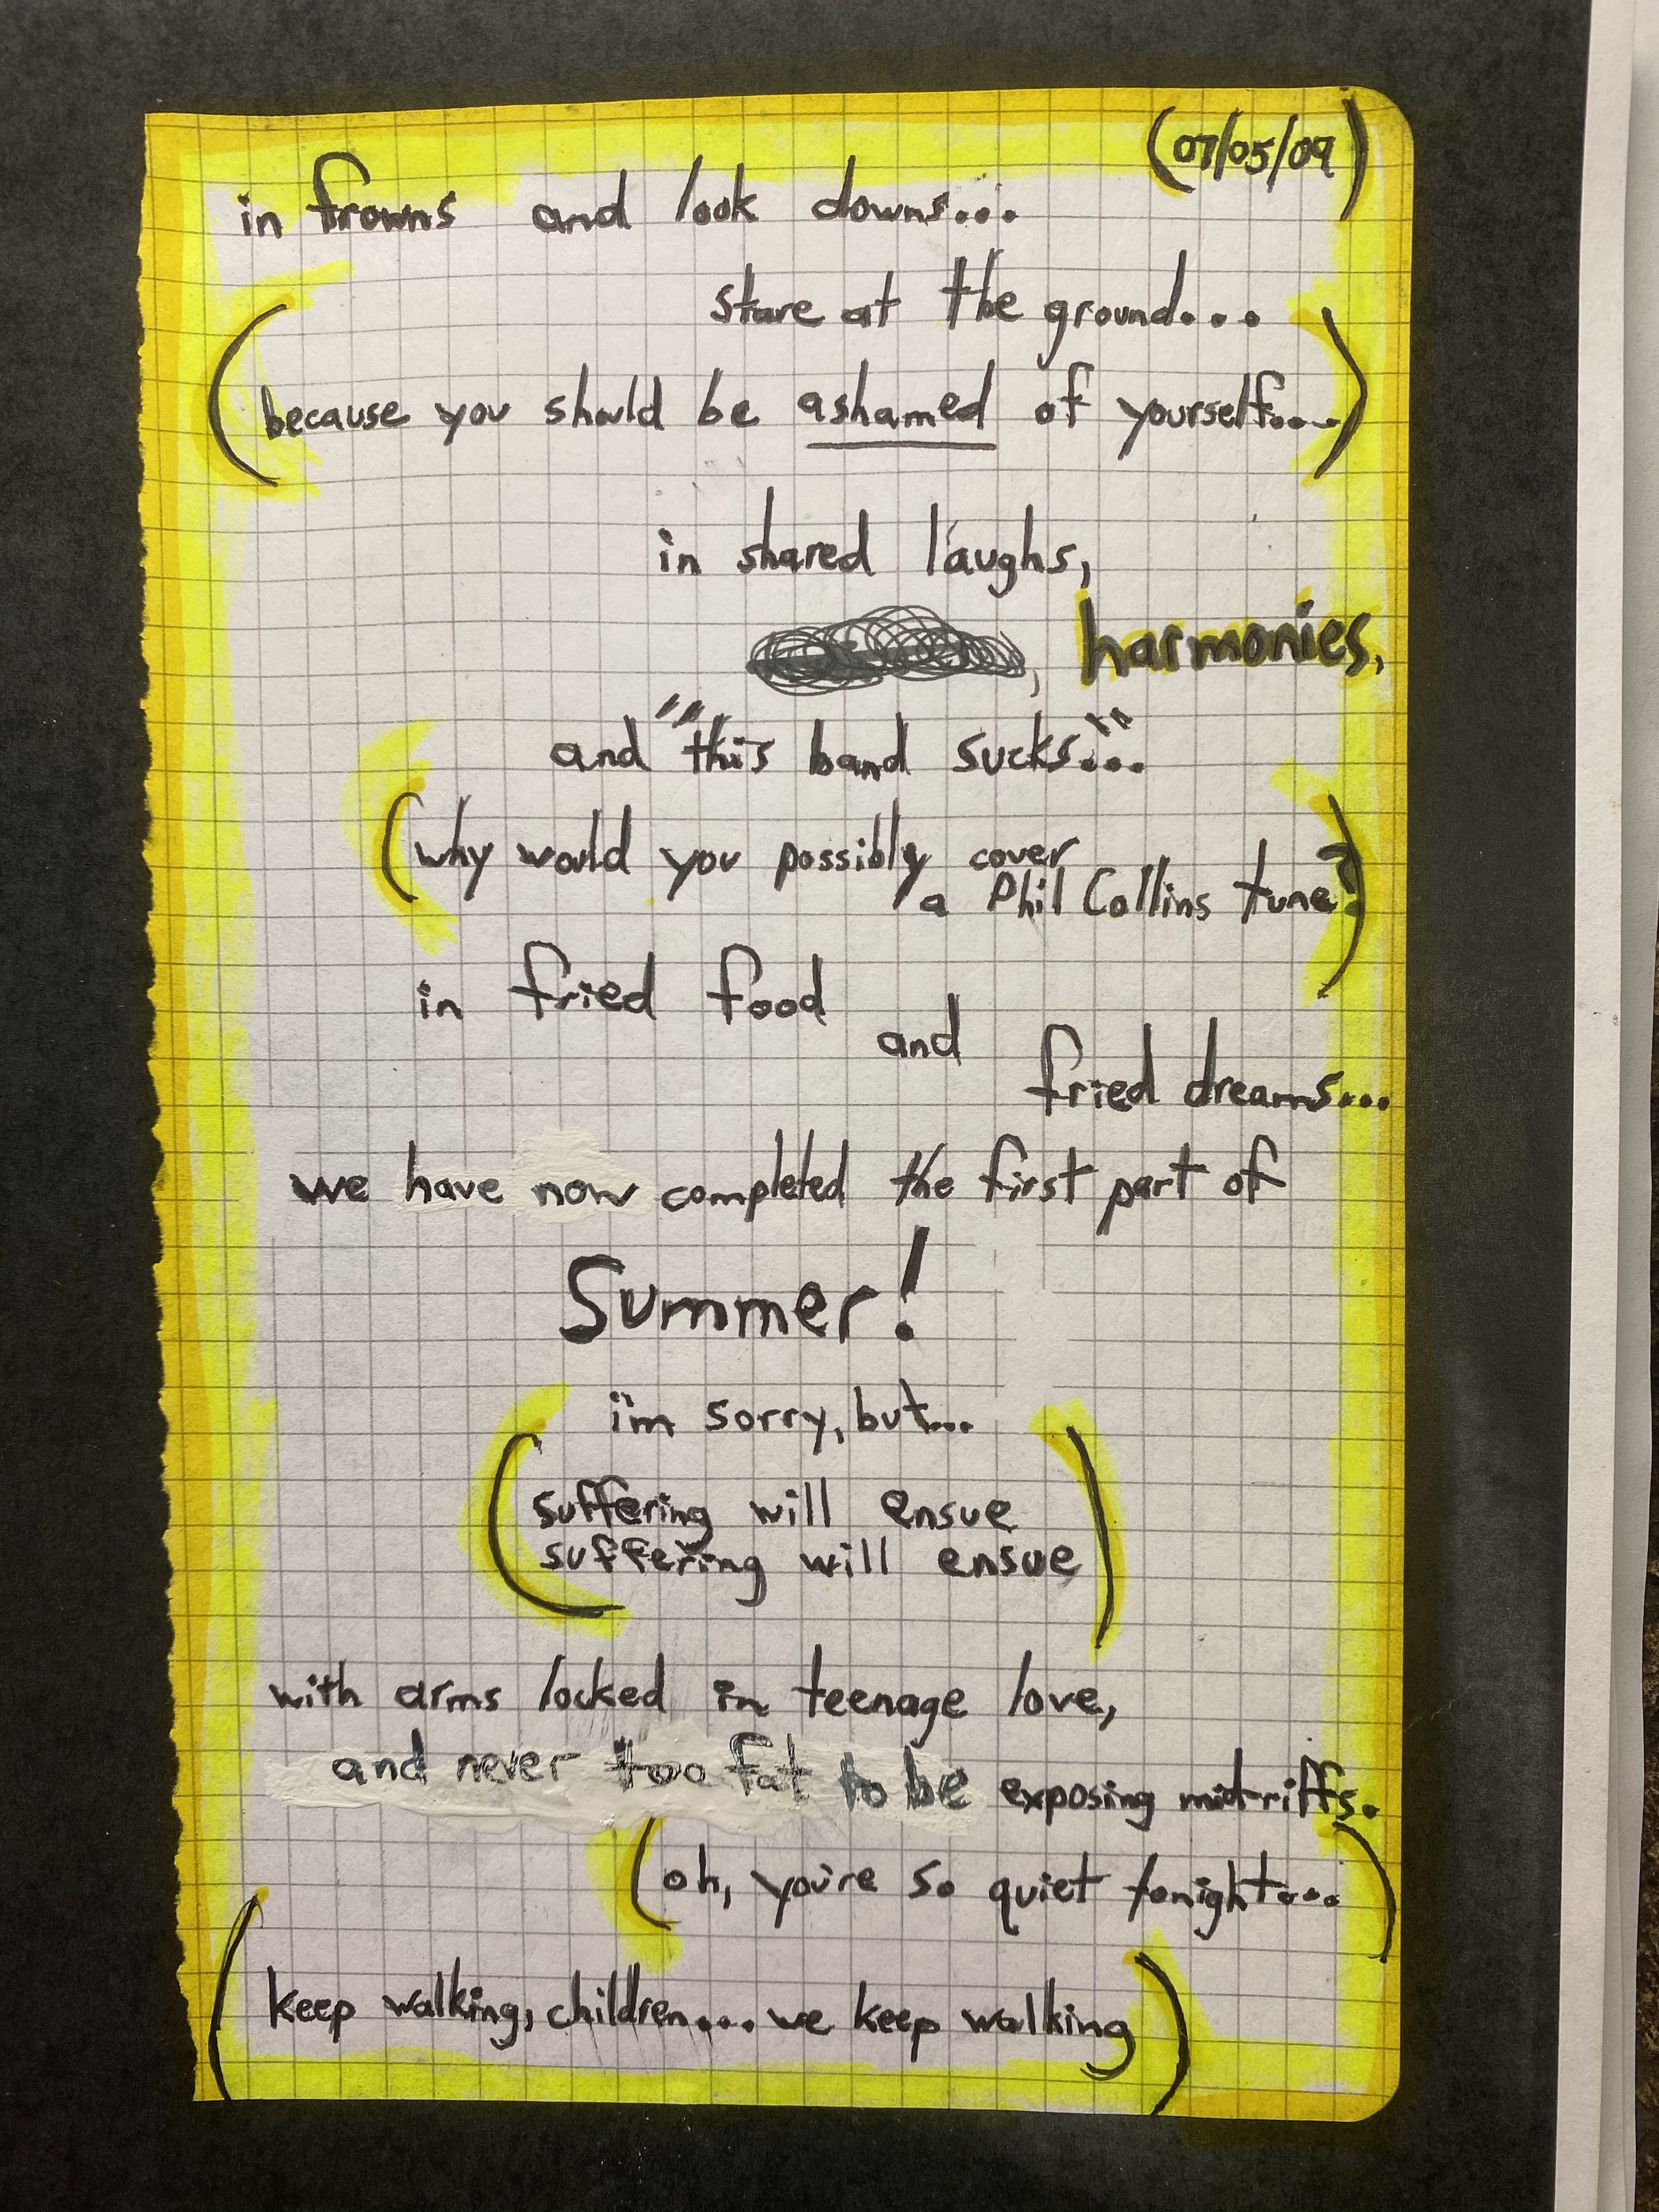 (07/05/09)
in frowns and look downs...
stare at the ground...
(because you should be ashamed of yourself....)
in shared laughs,
, harmonies,
and "this band sucks..."
(why would you possibly cover
a Phil Collins tune?)
in fried food
and
fried dreams...
we have now completed the first part of
Summer!
i'm sorry, but...
(suffering will ensue
suffering will ensue)
with arms locked in teenage love,
and never too fat to be exposing midriffs.
(oh, you're so quiet tonight...)
(keep walking, children... we keep walking)